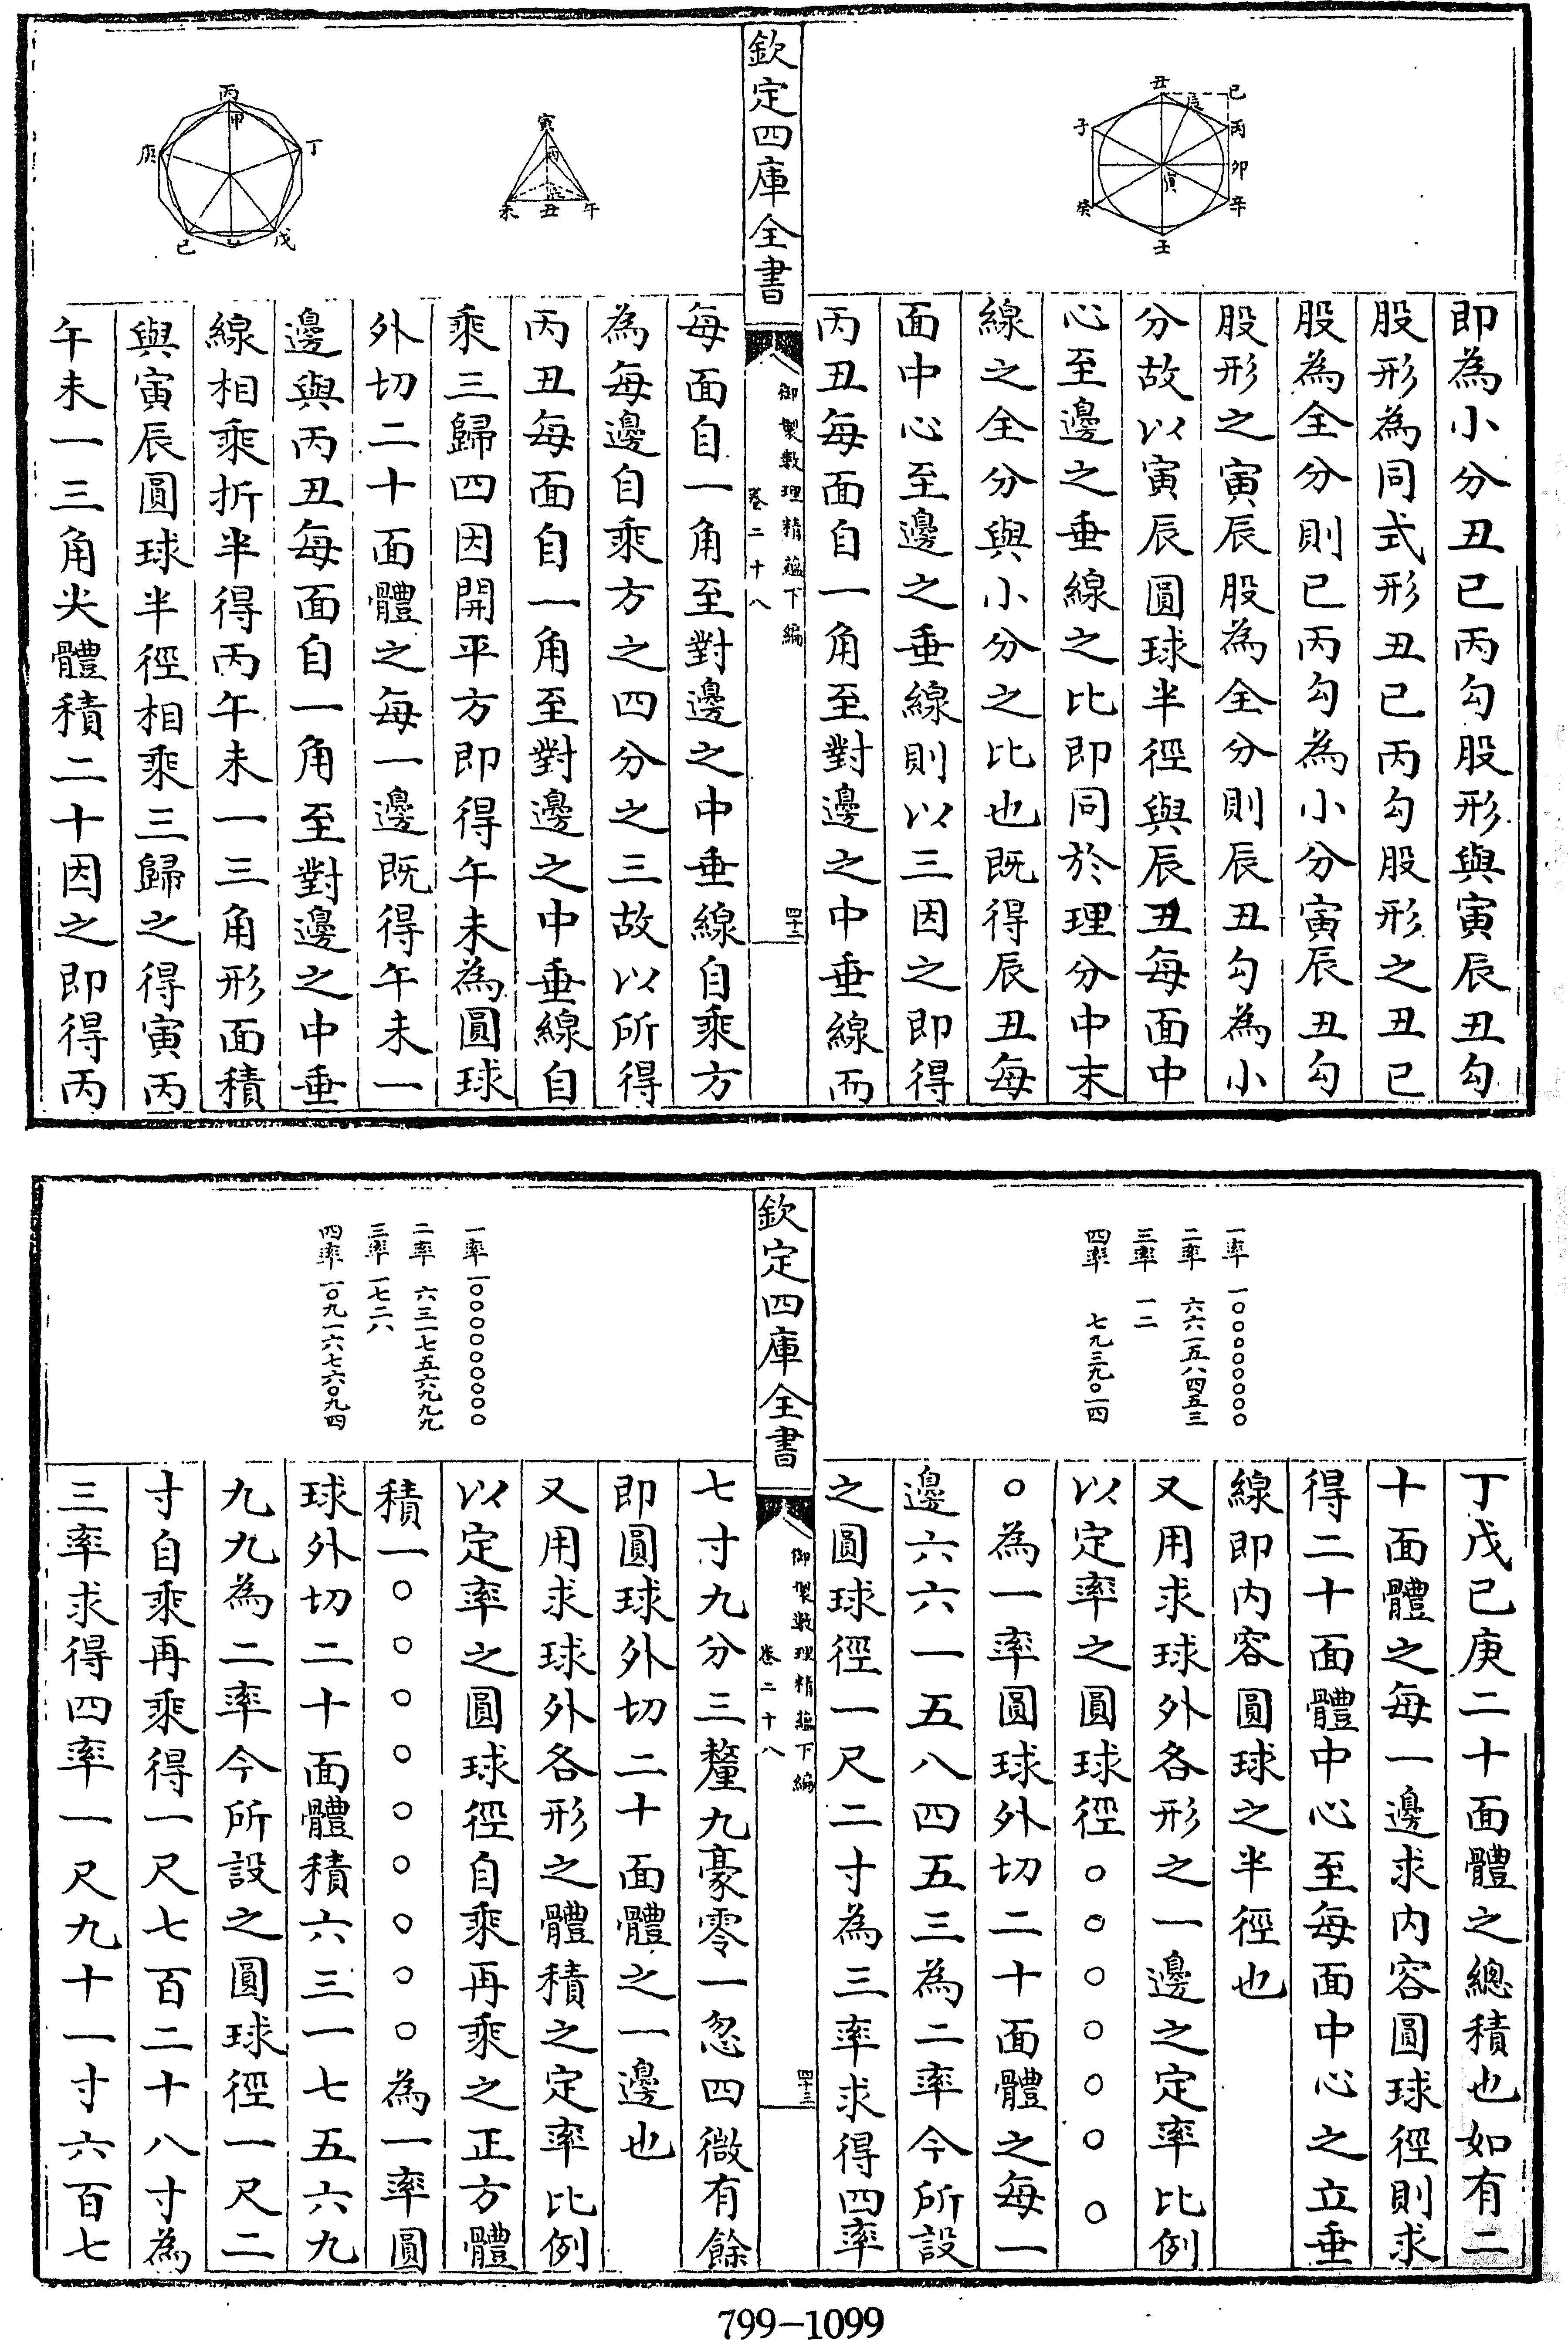 丑
己
辰
丙
子
卯
寅
癸
辛
壬
即為小分丑己丙勾股形與寅辰丑勾
股形為同式形丑己丙勾股形之丑己
股為全分則己丙勾為小分寅辰丑勾
股形之寅辰股為全分則辰丑勾為小
分故以寅辰圓球半徑與辰丑每面中
心至邊之垂線之比即同於理分中末
線之全分與小分之比也既得辰丑每
面中心至邊之垂線則以三因之即得
丙丑每面自一角至對邊之中垂線而
欽定四庫全書
御製數理精蘊下編
卷二十八
四十三
寅
丙
辰
未
丑
午
丙
甲
丁
庚
戊
己
乙
每面自一角至對邊之中垂線自乘方
為每邊自乘方之四分之三故以所得
丙丑每面自一角至對邊之中垂線自
乘三歸四因開平方即得午未為圓球
外切二十面體之每一邊既得午未一
邊與丙丑每面自一角至對邊之中垂
線相乘折半得丙午未一三角形面積
與寅辰圓球半徑相乘三歸之得寅丙
午未一三角尖體積二十因之即得丙
一率 一〇〇〇〇〇〇〇〇
二率 六六一五八四五三
三率 一二
四率 七九三九〇一四
丁戊己庚二十面體之總積也如有二
十面體之每一邊求內容圓球徑則求
得二十面體中心至每面中心之立垂
線即內容圓球之半徑也
又用求球外各形之一邊之定率比例
以定率之圓球徑一〇〇〇〇〇〇〇
〇為一率圓球外切二十面體之每一
邊六六一五八四五三為二率今所設
之圓球徑一尺二寸為三率求得四率
欽定四庫全書
御製數理精蘊下編
卷二十八
四十三
一率 一〇〇〇〇〇〇〇〇〇
二率 六三一七五六九九九
三率 一七二八
四率 一〇九一六七六〇九四
七寸九分三釐九豪零一忽四微有餘
即圓球外切二十面體之一邊也
又用求球外各形之體積之定率比例
以定率之圓球徑自乘再乘之正方體
積一〇〇〇〇〇〇〇〇〇為一率圓
球外切二十面體積六三一七五六九
九九為二率今所設之圓球徑一尺二
寸自乘再乘得一尺七百二十八寸為
三率求得四率一尺九十一寸六百七
799-1099